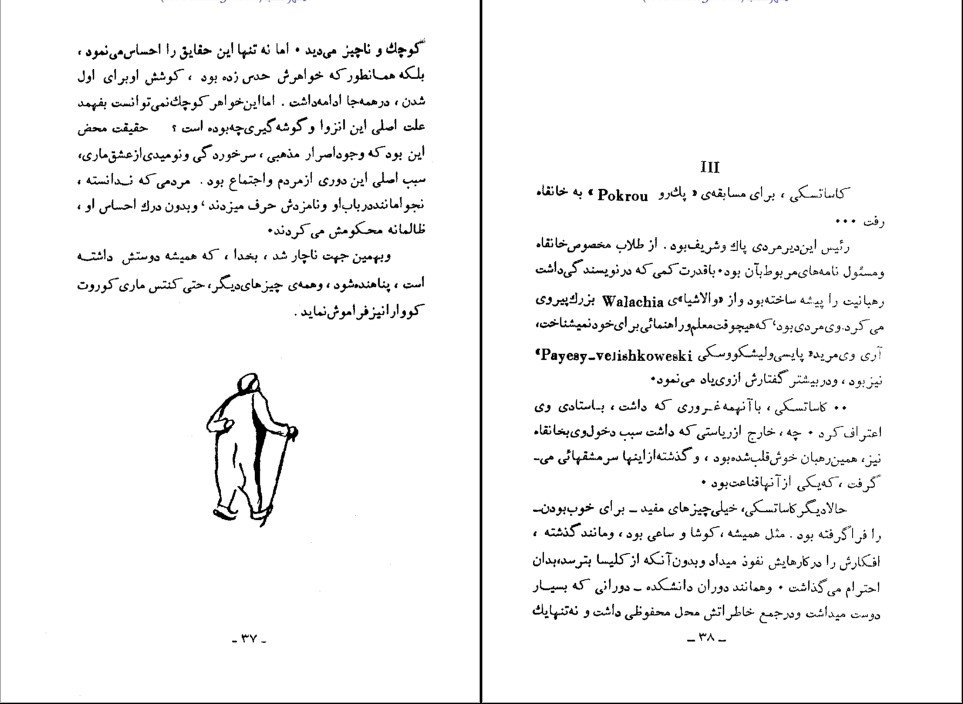 کوچك و ناچیز می‌دید ٠ اما نه تنها این حقایق را احساس می‌نمود ،
بلکه همانطور که خواهرش حدس زده بود ، کوشش او برای اول
شدن ، در همه جا ادامه داشت . اما این خواهر کوچك نمی‌توانست بفهمد
علت اصلی این انزوا و گوشه گیری چه بوده است ؟ حقیقت محض
این بود که وجود اصرار مذهبی ، سرخوردگی و نومیدی از عشق ماری،
سبب اصلی این دوری از مردم و اجتماع بود . مردمی که ندانسته ،
نجوا مانند در باب او و نامزدش حرف میزدند ، و بدون درك احساس او ،
ظالمانه محکومش می کردند٠
و بهمین جهت ناچار شد ، بخدا ، که همیشه دوستش داشتــه
است ، پناهنده شود ، و همه‌ی چیزهای دیگر، حتی کنتس ماری کوروت
کووا را نیز فراموش نماید .
ـ ۳۷ ـ
III
کاساتسکی ، برای مسابقه‌ی « پك‌رو Pokrou » به خانقاه
رفت ٠٠٠
رئیس این دیر مردی پاك و شریف بود . از طلاب مخصوص خانقاه
و مسئول نامه‌های مربوط بآن بود٠ با قدرت کمی که در نویسندگی داشت
رهبانیت را پیشه ساخته بود و از «والاشیا»ی Walachia بزرك پیروی
می کرد. وی مردی بود، که هیچوقت معلم و راهنمائی برای خود نمیشناخت،
آری وی مرید« پایسی ولیشکووسکی Payesy-velishkoweski»
نیز بود ، و در بیشتر گفتارش از وی یاد می نمود٠
٠٠ کاساتسکی ، با آنهمه غــروری که داشت ، بــاستادی وی
اعتراف کرد ٠ چه ، خارج از ریاستی که داشت سبب دخول وی بخانقاه
نیز، همین رهبان خوش قلب شده بود ، و گذشته از اینها سرمشقهائی می‌ـ
گرفت ، که یکی از آنها قناعت بود ٠
حالا دیگر کاساتسکی، خیلی چیزهای مفید ـ برای خوب بودن‌ـ
را فرا گرفته بود . مثل همیشه ، کوشا و ساعی بود ، و مانند گذشته ،
افکارش را در کارهایش نفوذ میداد و بدون آنکه از کلیسا بترسد، بدان
احترام می گذاشت ٠ و همانند دوران دانشکده ـ دورانی که بسیــار
دوست میداشت و در جمع خاطراتش محل محفوظی داشت و نه تنها یك
ـ ۳۸ ـ